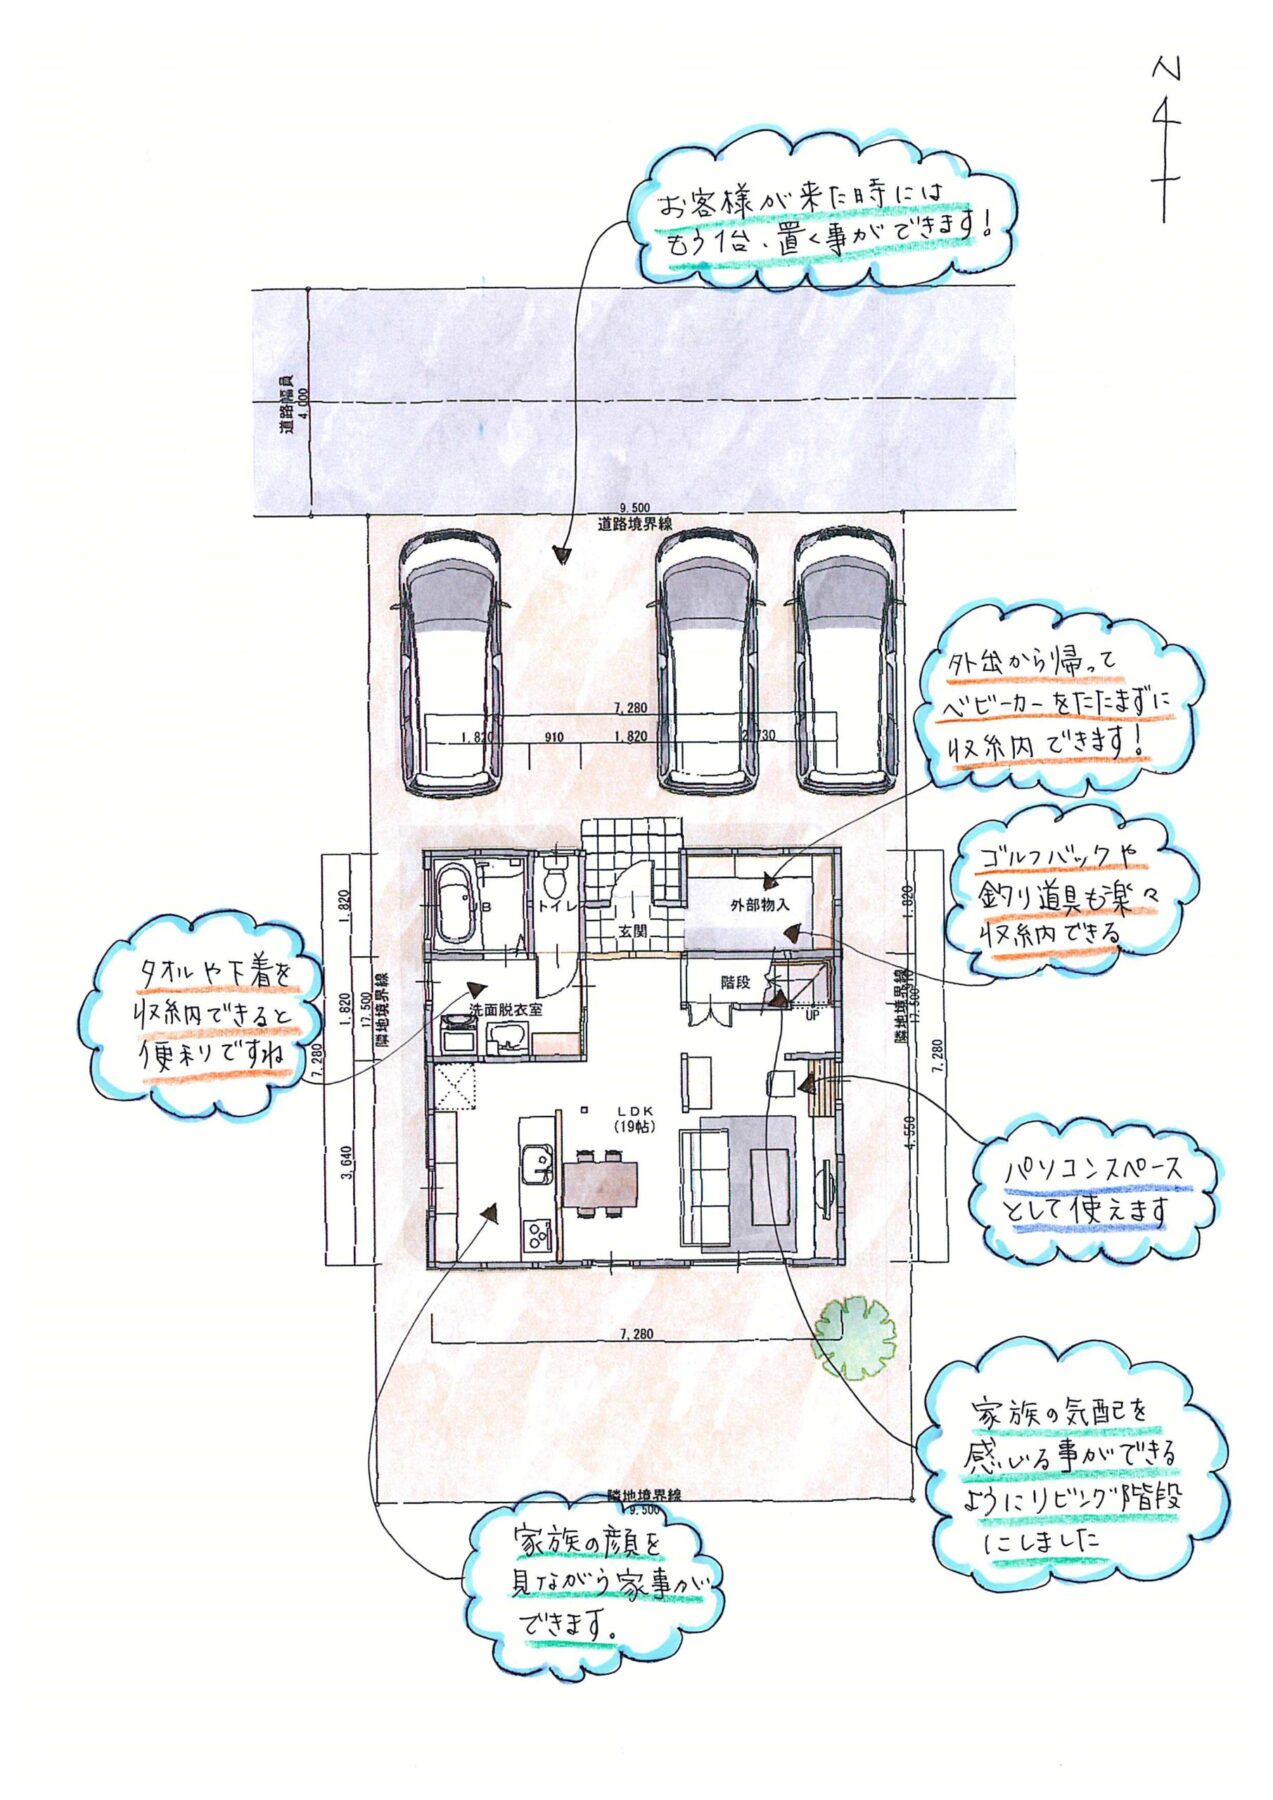 N
お客様が来た時には
もう1台、置く事ができます!
道路幅員
4,000
9,500
道路境界線
7,280
1,820
910
1,820
2,730
外出から帰って
ベビーカーをたたまずに
収納できます!
ゴルフバックや
釣り道具も楽々
収納できる
タオルや下着を
収納できると
便利ですね
1,820
1,820
3,640
7,280
17,500
隣地境界線
トイレ
玄関
外部物入
洗面脱衣室
階段
UP
LDK
(19帖)
1,820
910
4,550
7,280
17,500
隣地境界線
パソコンスペース
として使えます
7,280
家族の気配を
感じる事ができる
ようにリビング階段
にしました
隣地境界線
9,500
家族の顔を
見ながら家事が
できます。